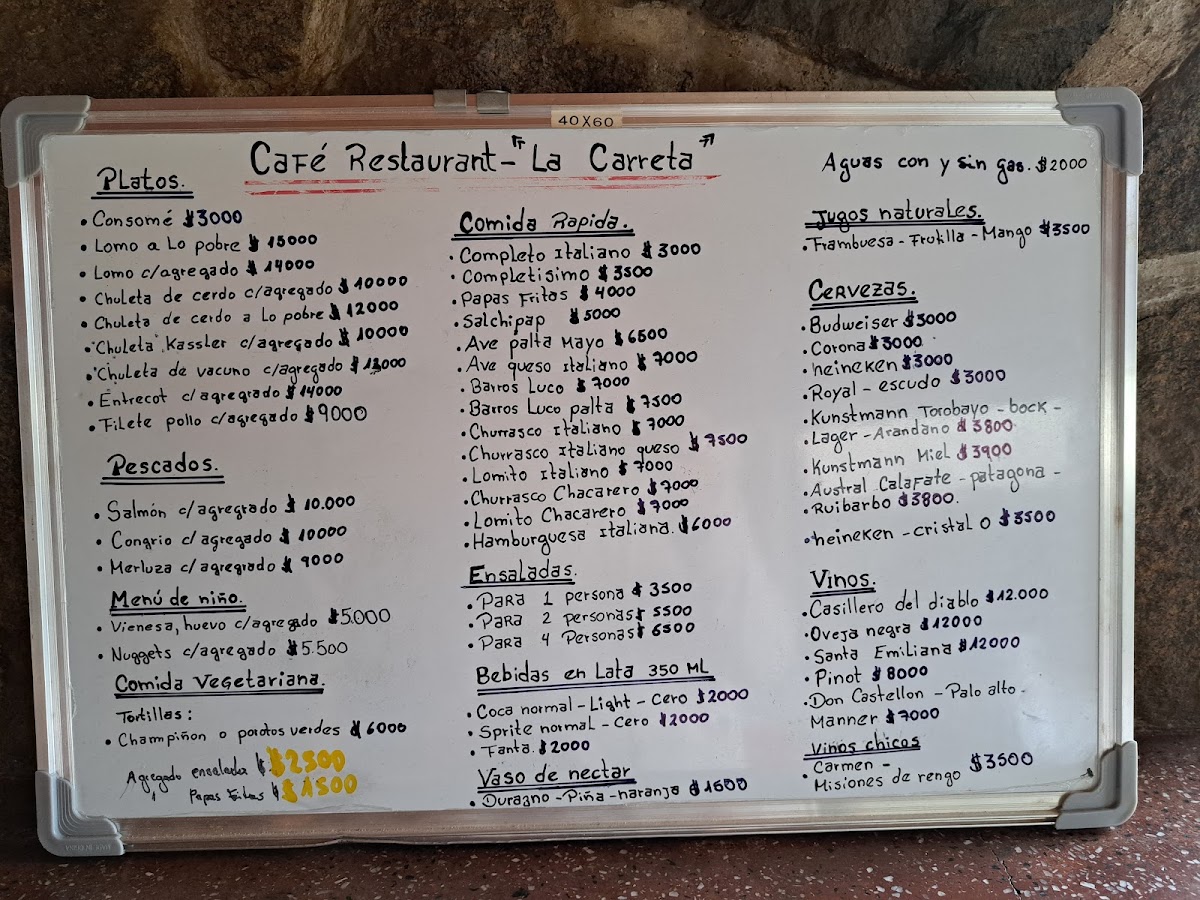 40X60
Café Restaurant-"La Carreta"
Platos.
• Consomé $3000
• Lomo a Lo pobre $ 15000
• Lomo c/agregado $ 14000
• Chuleta de cerdo c/agregado $ 10000
• Chuleta de cerdo a Lo pobre $ 12000
• "Chuleta" Kassler c/agregado $ 10000
• "Chuleta de vacuno c/agregado $ 13000
• Entrecot c/agregado $ 14000
• Filete pollo c/agregado $9000
Pescados.
• Salmón c/agregrado $ 10.000
• Congrio c/agregado $ 10000
• Merluza c/agregrado $ 9000
Menú de niño.
• Vienesa, huevo c/agregado $5.000
• Nuggets c/agregado $5.500
Comida Vegetariana.
Tortillas:
• Champiñon o porotos verdes $ 6000
Agregado ensaladas $ $2500
Papas Fritas $ $1500
Comida Rapida.
• Completo Italiano $ 3000
• Completisimo $ 3500
• Papas Fritas $ 4000
• Salchipap $5000
• Ave palta Mayo $ 6500
• Ave queso Italiano $ 7000
• Barros Luco $ 7000
• Barros Luco palta $ 7500
• Churrasco Italiano $ 7000
• Churrasco Italiano queso $ 7500
• Lomito Italiano $ 7000
• Churrasco Chacarero $ 7000
• Lomito Chacarero $ 7000
• Hamburguesa Italiana. $6000
Ensaladas.
• Para 1 persona $ 3500
• Para 2 personas $ 5500
• Para 4 Personas $ 6500
Bebidas en Lata 350 ML
• Coca normal - Light - Cero $2000
• Sprite normal - Cero $2000
• Fanta. $2000
Vaso de nectar
• Durazno - Piña - naranja $1600
Aguas con y sin gas. $2000
Jugos naturales.
• Frambuesa - Frutilla - Mango $3500
Cervezas.
• Budweiser $3000
• Corona $3000
• heineken $3000
• Royal - escudo $3000
• Kunstmann Torobayo - bock -
• Lager - Arandano $ 3800
• Kunstmann Miel $ 3900
• Austral Calafate - patagona -
• Ruibarbo $3800.
• heineken - cristal 0 $ 3500
Vinos.
• Casillero del diablo $12.000
• Oveja negra $12000
• Santa Emiliana $12000
• Pinot $ 8000
• Don Castellon - Palo alto -
Manner $7000
Vinos chicos
• Carmen -
Misiones de rengo $3500